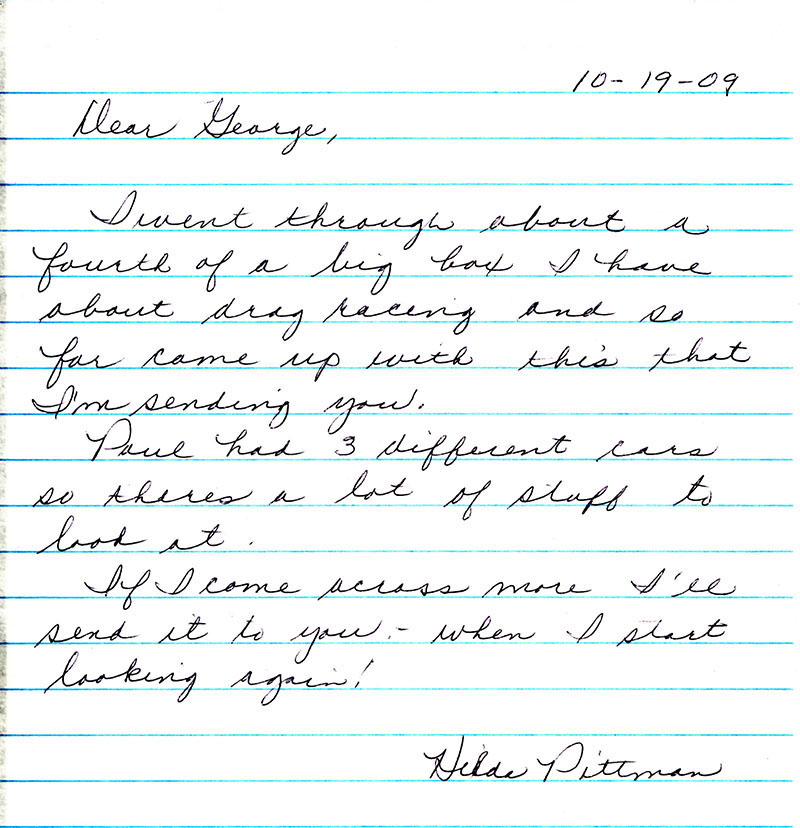 10-19-09
Dear George,
I went through about a
fourth of a big box I have
about drag racing and so
far come up with this that
I'm sending you.
Paul had 3 different cars
so theres a lot of stuff to
look at.
If I come across more I'll
send it to you - when I start
looking again!
Hilda Pittman